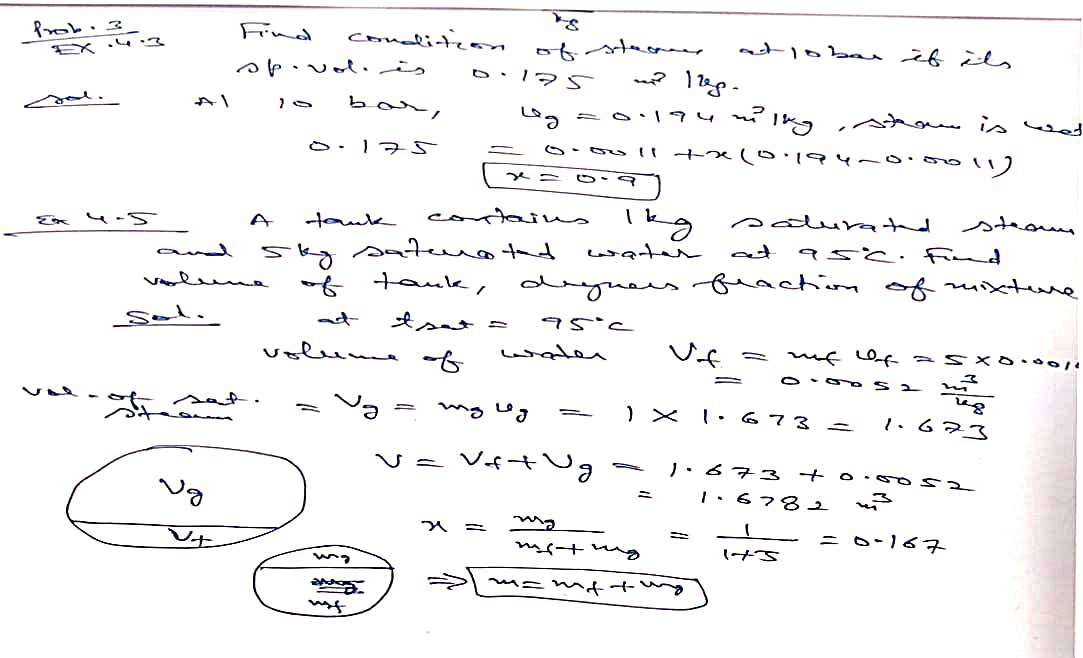 kg
Prob. 3 Find condition of steam at 10 bar if its
EX. 4.3 sp. vol. is 0.175 m³/kg.
sol. At 10 bar, vg = 0.194 m³/kg, steam is wet
0.175 = 0.0011 + x(0.194 - 0.0011)
x = 0.9
Ex 4.5 A tank contains 1 kg saturated steam
and 5 kg saturated water at 95°C. Find
volume of tank, dryness fraction of mixture
Sol. at tsat = 95°C
volume of water Vf = mf vf = 5 × 0.001
= 0.0052 m³/kg
vol. of sat. steam = Vg = mg vg = 1 × 1.673 = 1.673
V = Vf + Vg = 1.673 + 0.0052
= 1.6782 m³
Vg
Vf
x = mg/(mf + mg) = 1/(1+5) = 0.167
mg
mf
⇒ m = mf + mg